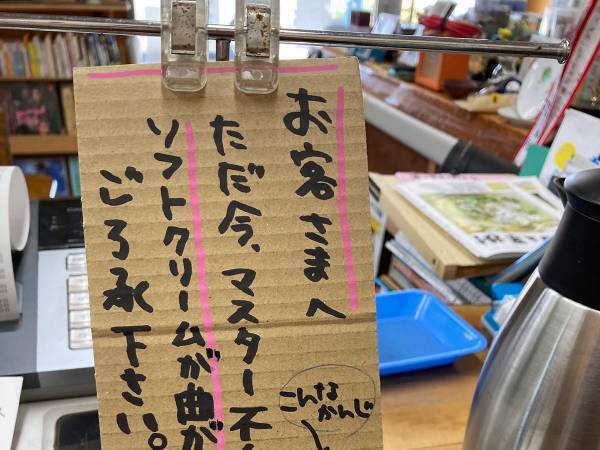 お客さまへ
ただ今、マスター不
ソフトクリームが曲が
ごろ承下さい。
こんな
かんじ